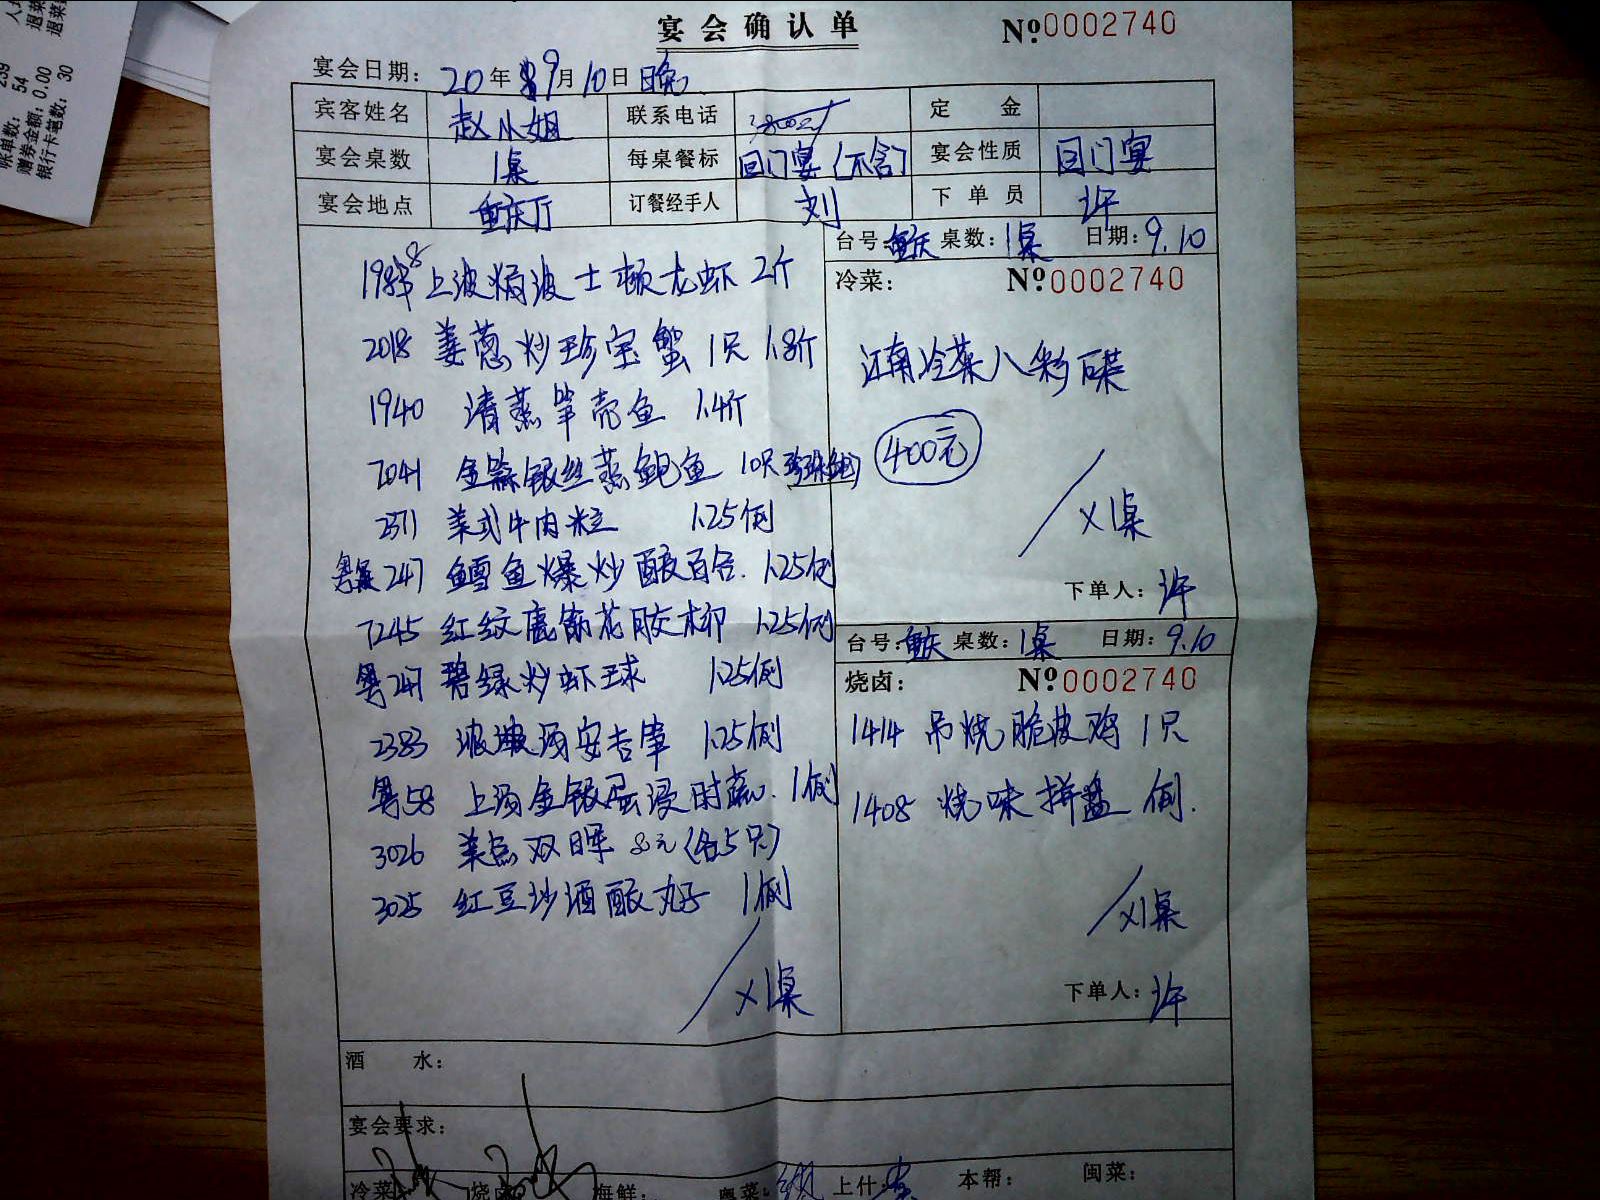 宴会确认单
№0002740
宴会日期: 20年9月10日 晚
宾客姓名 赵小姐 联系电话 定金
宴会桌数 1桌 每桌餐标 回门宴(不含) 宴会性质 回门宴
宴会地点 重庆厅 订餐经手人 刘 下单员 许
台号: 重庆 桌数: 1桌 日期: 9.10
冷菜: №0002740
上波焗波士顿龙虾 2斤
2018 姜葱炒珍宝蟹 1只 1.8斤
1940 清蒸笋壳鱼 1.4斤
7041 金蒜银丝蒸鲍鱼 10只
2371 美式牛肉粒 1.25例
247 鳕鱼爆炒酸百合. 1.25例
7245 红纹鹿筋花胶柳 1.25例
粤247 碧绿炒虾球 1.25例
2383 浓汤安吉笋 1.25例
粤58 上汤金银蛋浸时蔬. 1例
3026 美点双晖 8元(各5只)
3025 红豆沙酒酿丸子 1例
×1桌
江南冷菜八彩碟
400元
×1桌
下单人: 许
台号: 重庆 桌数: 1桌 日期: 9.10
烧卤: №0002740
1414 吊烧脆皮鸡 1只
1408 烧味拼盘 例.
×1桌
下单人: 许
酒水:
宴会要求:
冷菜 烧卤 海鲜: 粤菜: 上什: 本帮: 闽菜:
人
退菜
239
54
账单数:
赠券金额: 0.00
银行卡笔数: 30
退菜